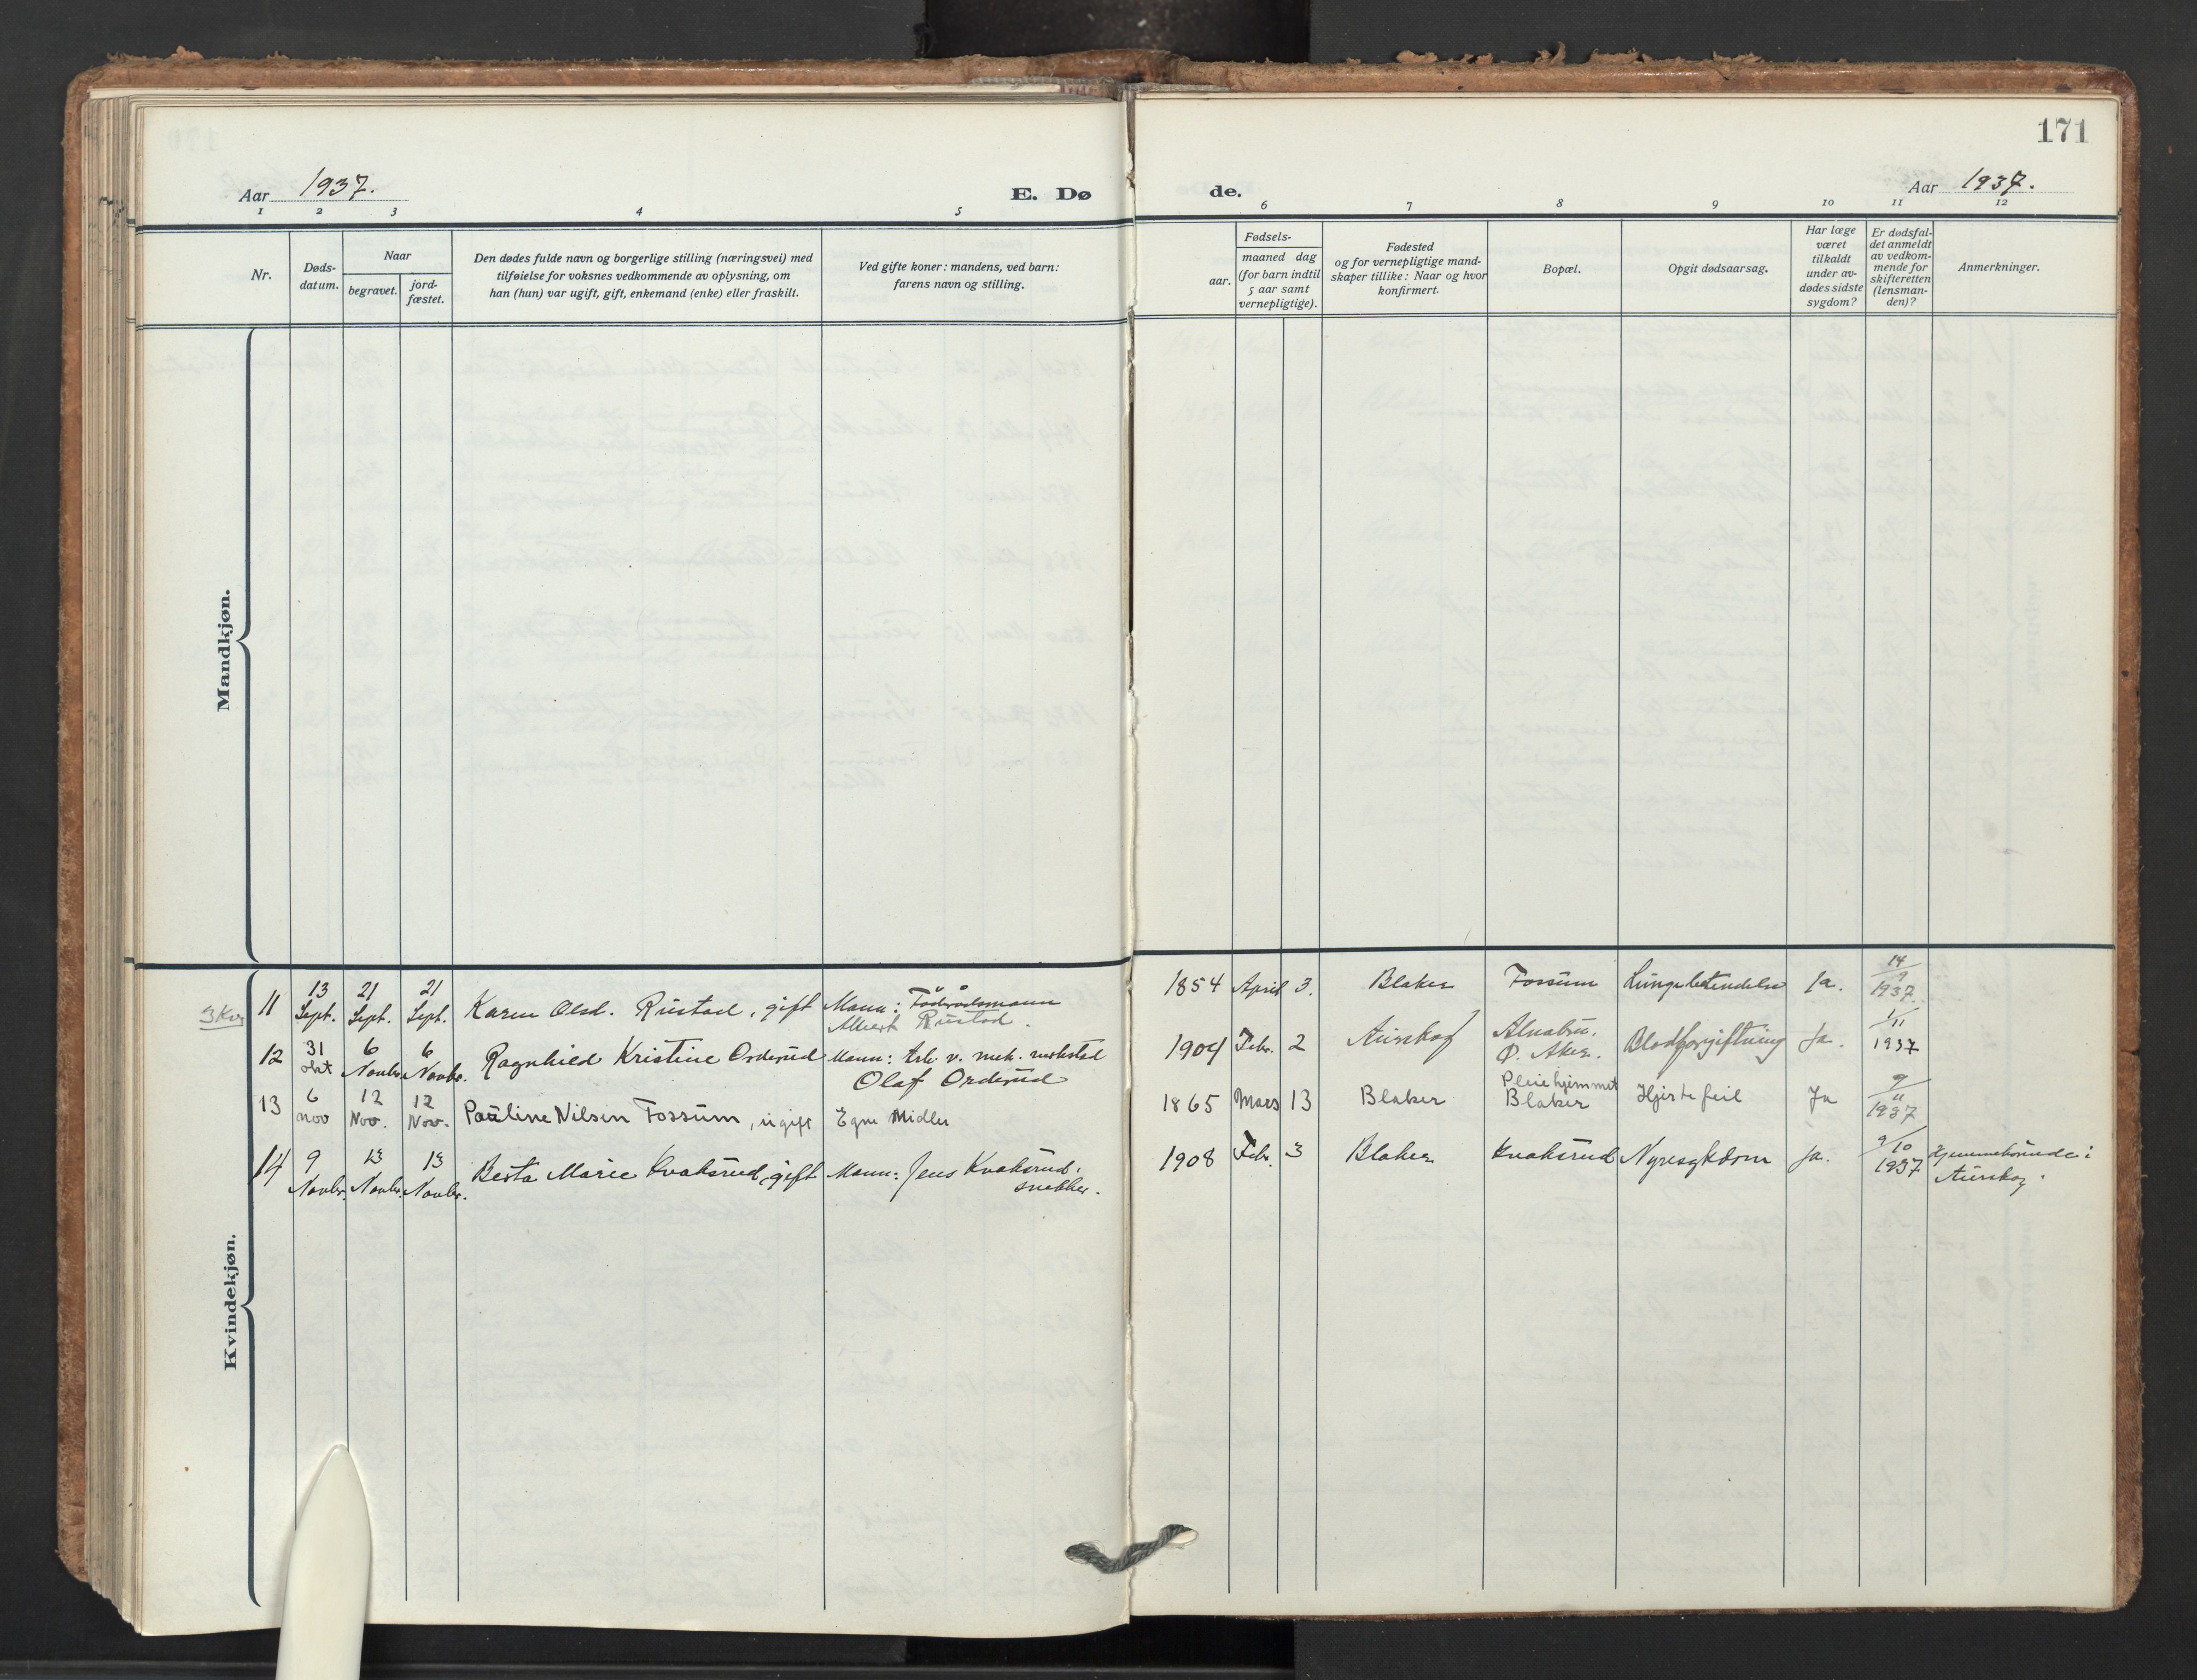 171
Aar 1937.
E. Dø
de.
Aar 1937.
1 2 3 4 5 6 7 8 9 10 11 12
Nr.
Døds-
datum.
Naar
begravet.
jord-
fæstet.
Den dødes fulde navn og borgerlige stilling (næringsvei) med
tilføielse for voksnes vedkommende av oplysning, om
han (hun) var ugift, gift, enkemand (enke) eller fraskilt.
Ved gifte koner: mandens, ved barn:
farens navn og stilling.
Fødsels-
aar.
maaned dag
(for barn indtil
5 aar samt
vernepligtige).
Fødested
og for vernepligtige mand-
skaper tillike: Naar og hvor
konfirmert.
Bopæl.
Opgit dødsaarsag.
Har læge
været
tilkaldt
under av-
dødes sidste
sygdom?
Er dødsfal-
det anmeldt
av vedkom-
mende for
skifteretten
(lensman-
den)?
Anmerkninger.
Mandkjøn.
Kvindekjøn.
11 13 Sept. 21 Sept. 21 Sept. Karen Olsd. Rustad, gift Mann: Föderådsmann
Albert Rustad. 1854 April 3. Blaker Fossum Lungebetendelse Ja. 14/9 1937.
12 31 okt 6 Novbr. 6 Novbr. Ragnhild Kristine Orderud Mann: Arb. v. mek. verksted
Olaf Orderud 1904 Febr. 2 Aurskog Alnabru.
Ø. Aker. Blodforgiftning Ja. 1/11 1937
13 6 nov 12 Nov. 12 Nov. Pauline Nilsen Fossum, ugift Egne Midler 1865 Mars 13 Blaker Pleiehjemmet
Blaker Hjertefeil Ja 9/11 1937
14 9 Novbr. 13 Novbr. 13 Novbr. Berta Marie Kvaksrud, gift Mann: Jens Kvaksrud,
snekker. 1908 Febr. 3 Blaker Kvaksrud Nyresykdom Ja. 9/10 1937 Hjemmehörende i
Aurskog.